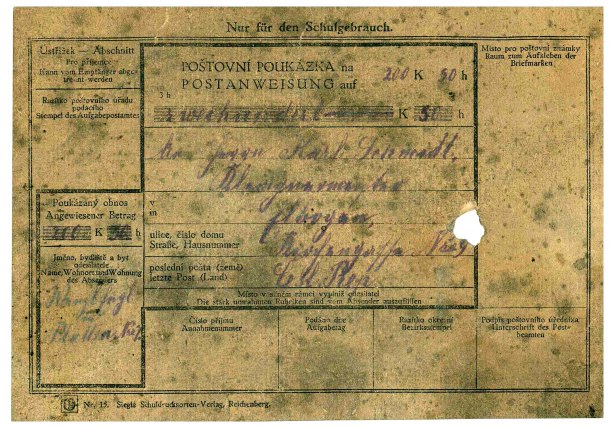 Nur für den Schulgebrauch.
Ústřižek — Abschnitt
Pro příjemce
Kann vom Empfänger abge-
trennt werden
Razítko poštovního úřadu
podacího
Stempel des Aufgabepostamtes
POŠTOVNÍ POUKÁZKA na 200 K 50 h
POSTANWEISUNG auf
zweihundert K 50 h
Místo pro poštovní známky
Raum zum Aufkleben der
Briefmarken
An Herrn Karl Schmidt,
Elbogen,
v
in
ulice, číslo domu
Straße, Hausnummer
Kirchengasse
poslední pošta (země)
letzte Post (Land)
Místo v silném rámci vyplniž odesílatel
Die stark umrahmten Rubriken sind vom Absender auszufüllen
Poukázaný obnos
Angewiesener Betrag
200 K 50 h
Jméno, bydliště a byt
odesílatele
Name, Wohnort und Wohnung
des Absenders
Číslo příjmu
Annahmenummer
Podáno dne
Aufgabetag
Razítko okresní
Bezirksstempel
Podpis poštovního úředníka
Unterschrift des Post-
beamten
Nr. 15. Siegls Schuldrucksorten-Verlag, Reichenberg.